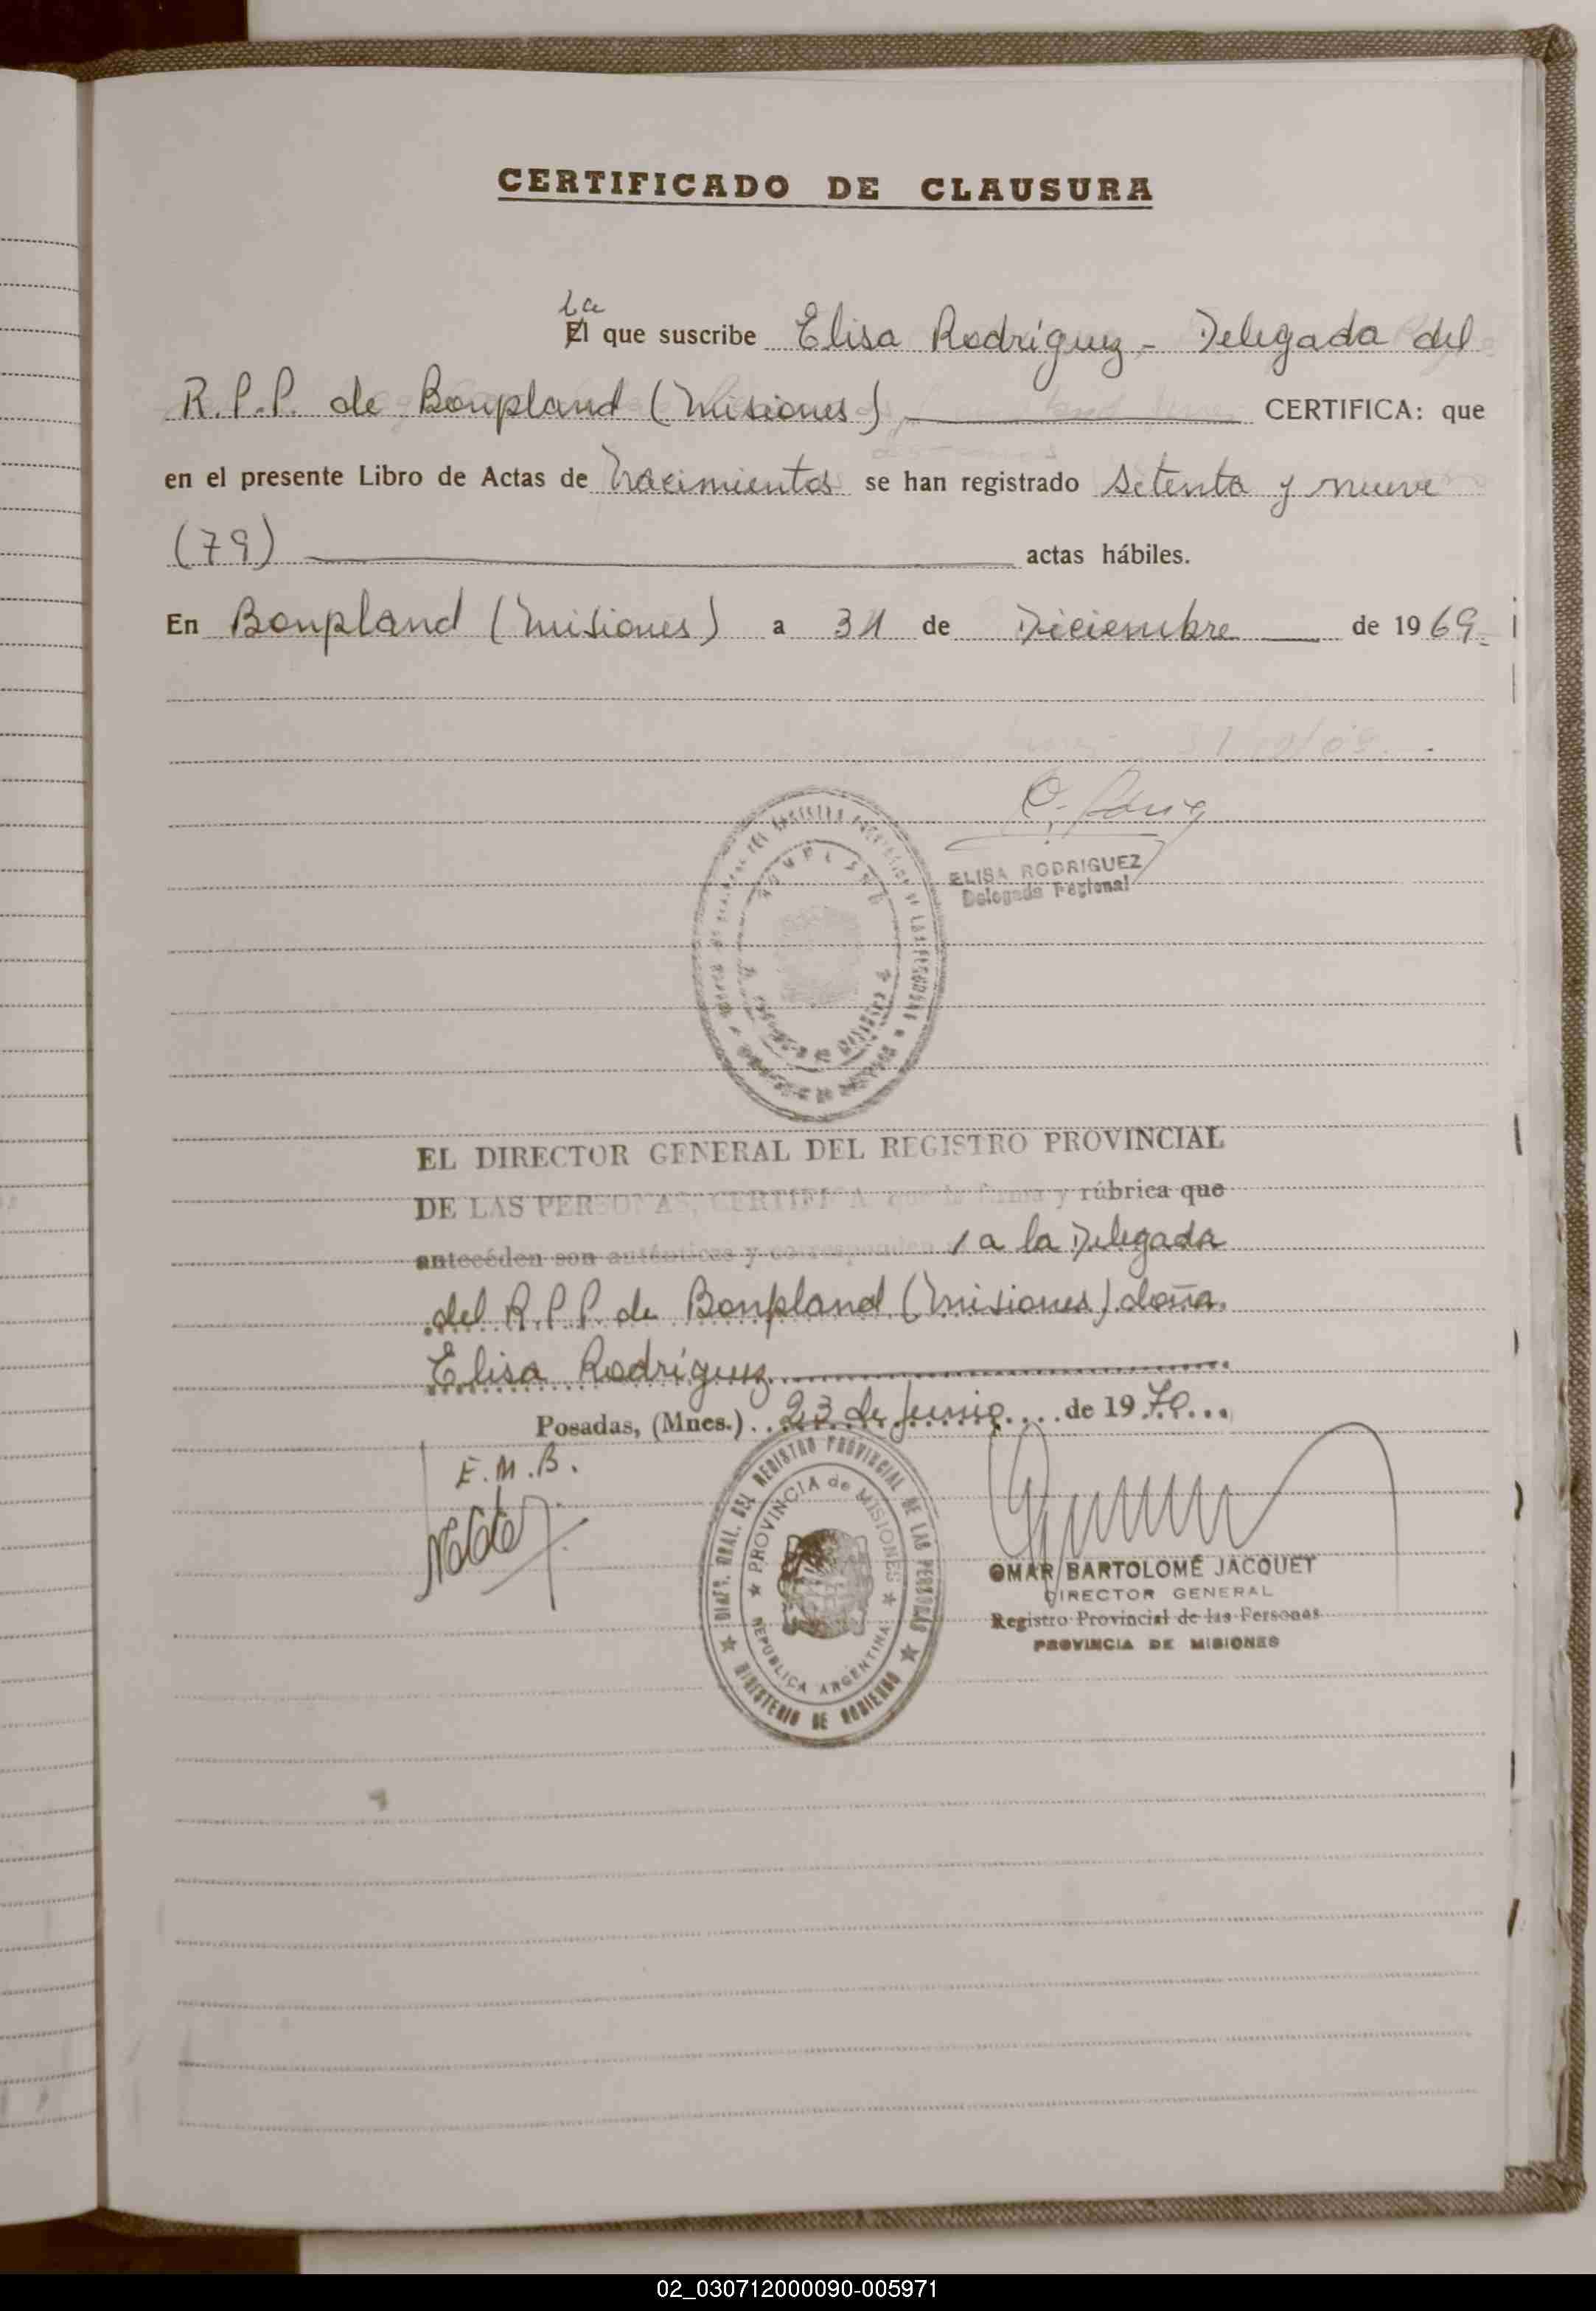 CERTIFICADO DE CLAUSURA
La
El que suscribe Elisa Rodríguez - Delegada del
R.P.P. de Bonpland (Misiones) CERTIFICA: que
en el presente Libro de Actas de Nacimientos se han registrado setenta y nueve
(79) actas hábiles.
En Bonpland (Misiones) a 31 de Diciembre de 1969.
ELISA RODRIGUEZ
Delegada Regional
EL DIRECTOR GENERAL DEL REGISTRO PROVINCIAL
DE LAS PERSONAS, CERTIFICA que la firma y rúbrica que
antecéden son auténticas y corresponden a la Delegada
del R.P.P. de Bonpland (Misiones) doña
Elisa Rodríguez
Posadas, (Mnes.) 23 de Junio de 1970
E.M.B.
DIREC. GRAL. DEL REGISTRO PROVINCIAL DE LAS PERSONAS
PROVINCIA de MISIONES
REPUBLICA ARGENTINA
MINISTERIO DE GOBIERNO
OMAR BARTOLOMÉ JACQUET
DIRECTOR GENERAL
Registro Provincial de las Personas
PROVINCIA DE MISIONES
02_030712000090-005971